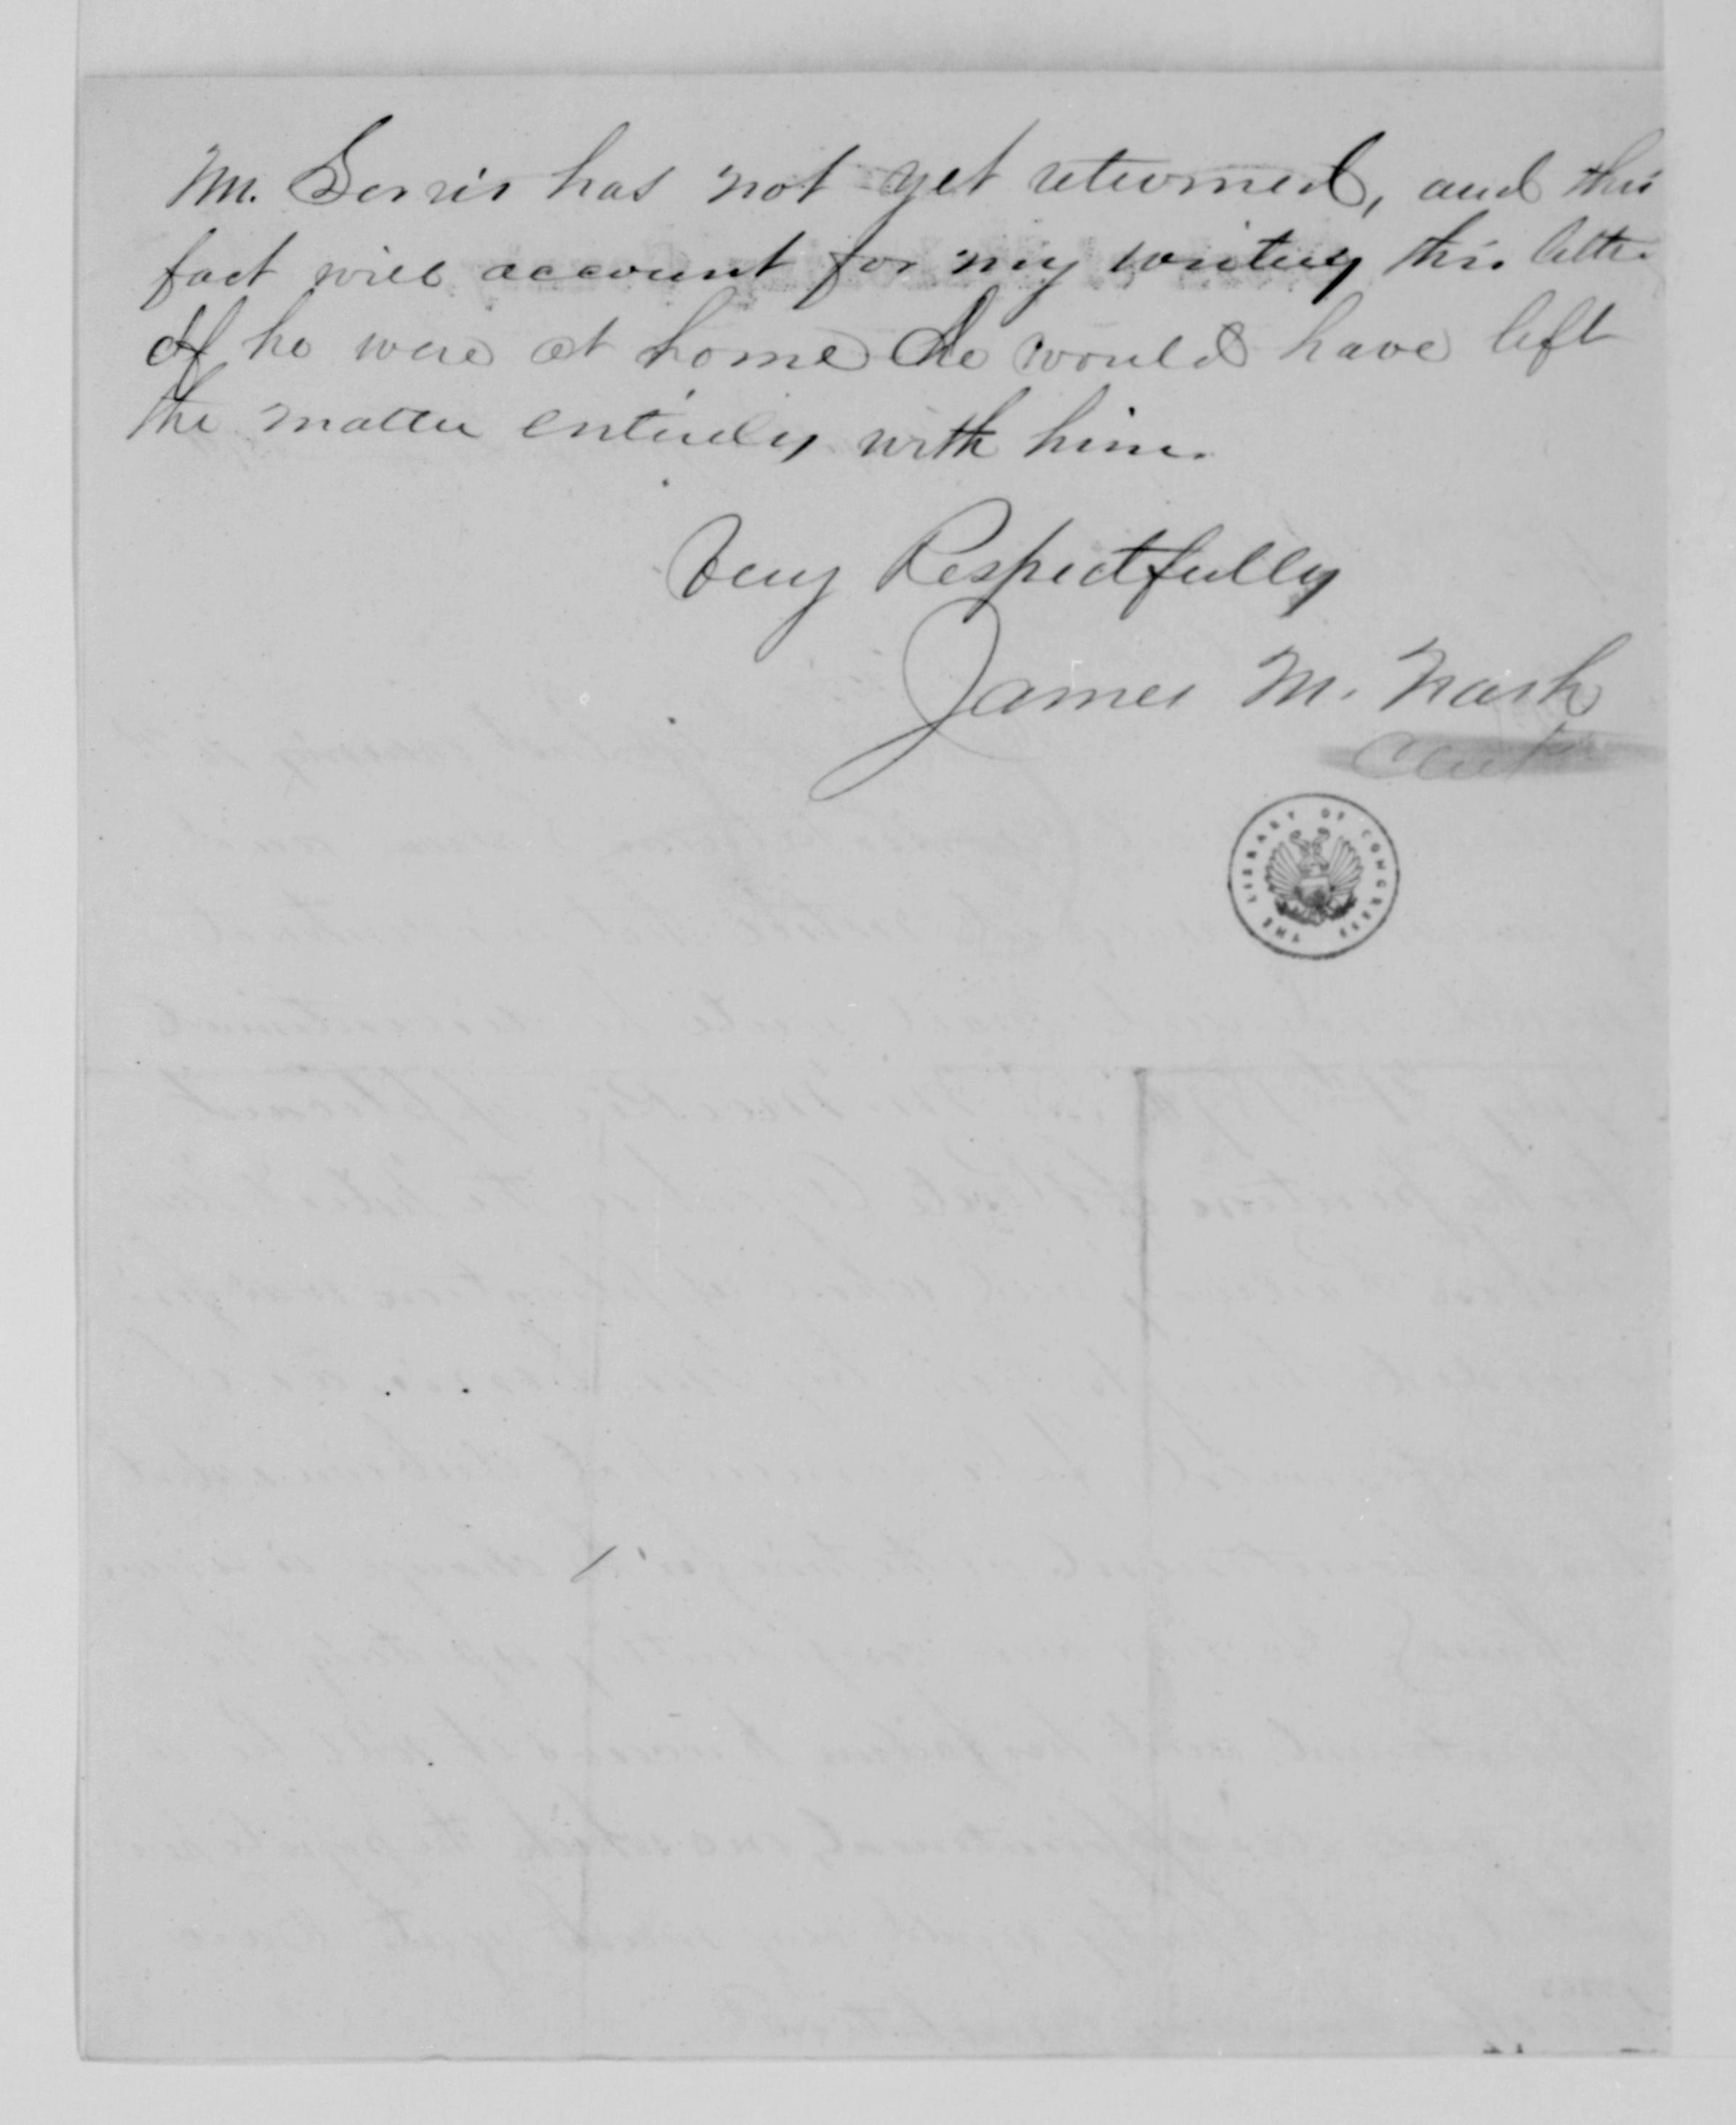 Mr. Gerris has not yet returned, and this
fact will account for my writing this letter
If he were at home I would have left
the matter entirely with him.
Very Respectfully
James M. Nash
THE LIBRARY OF CONGRESS